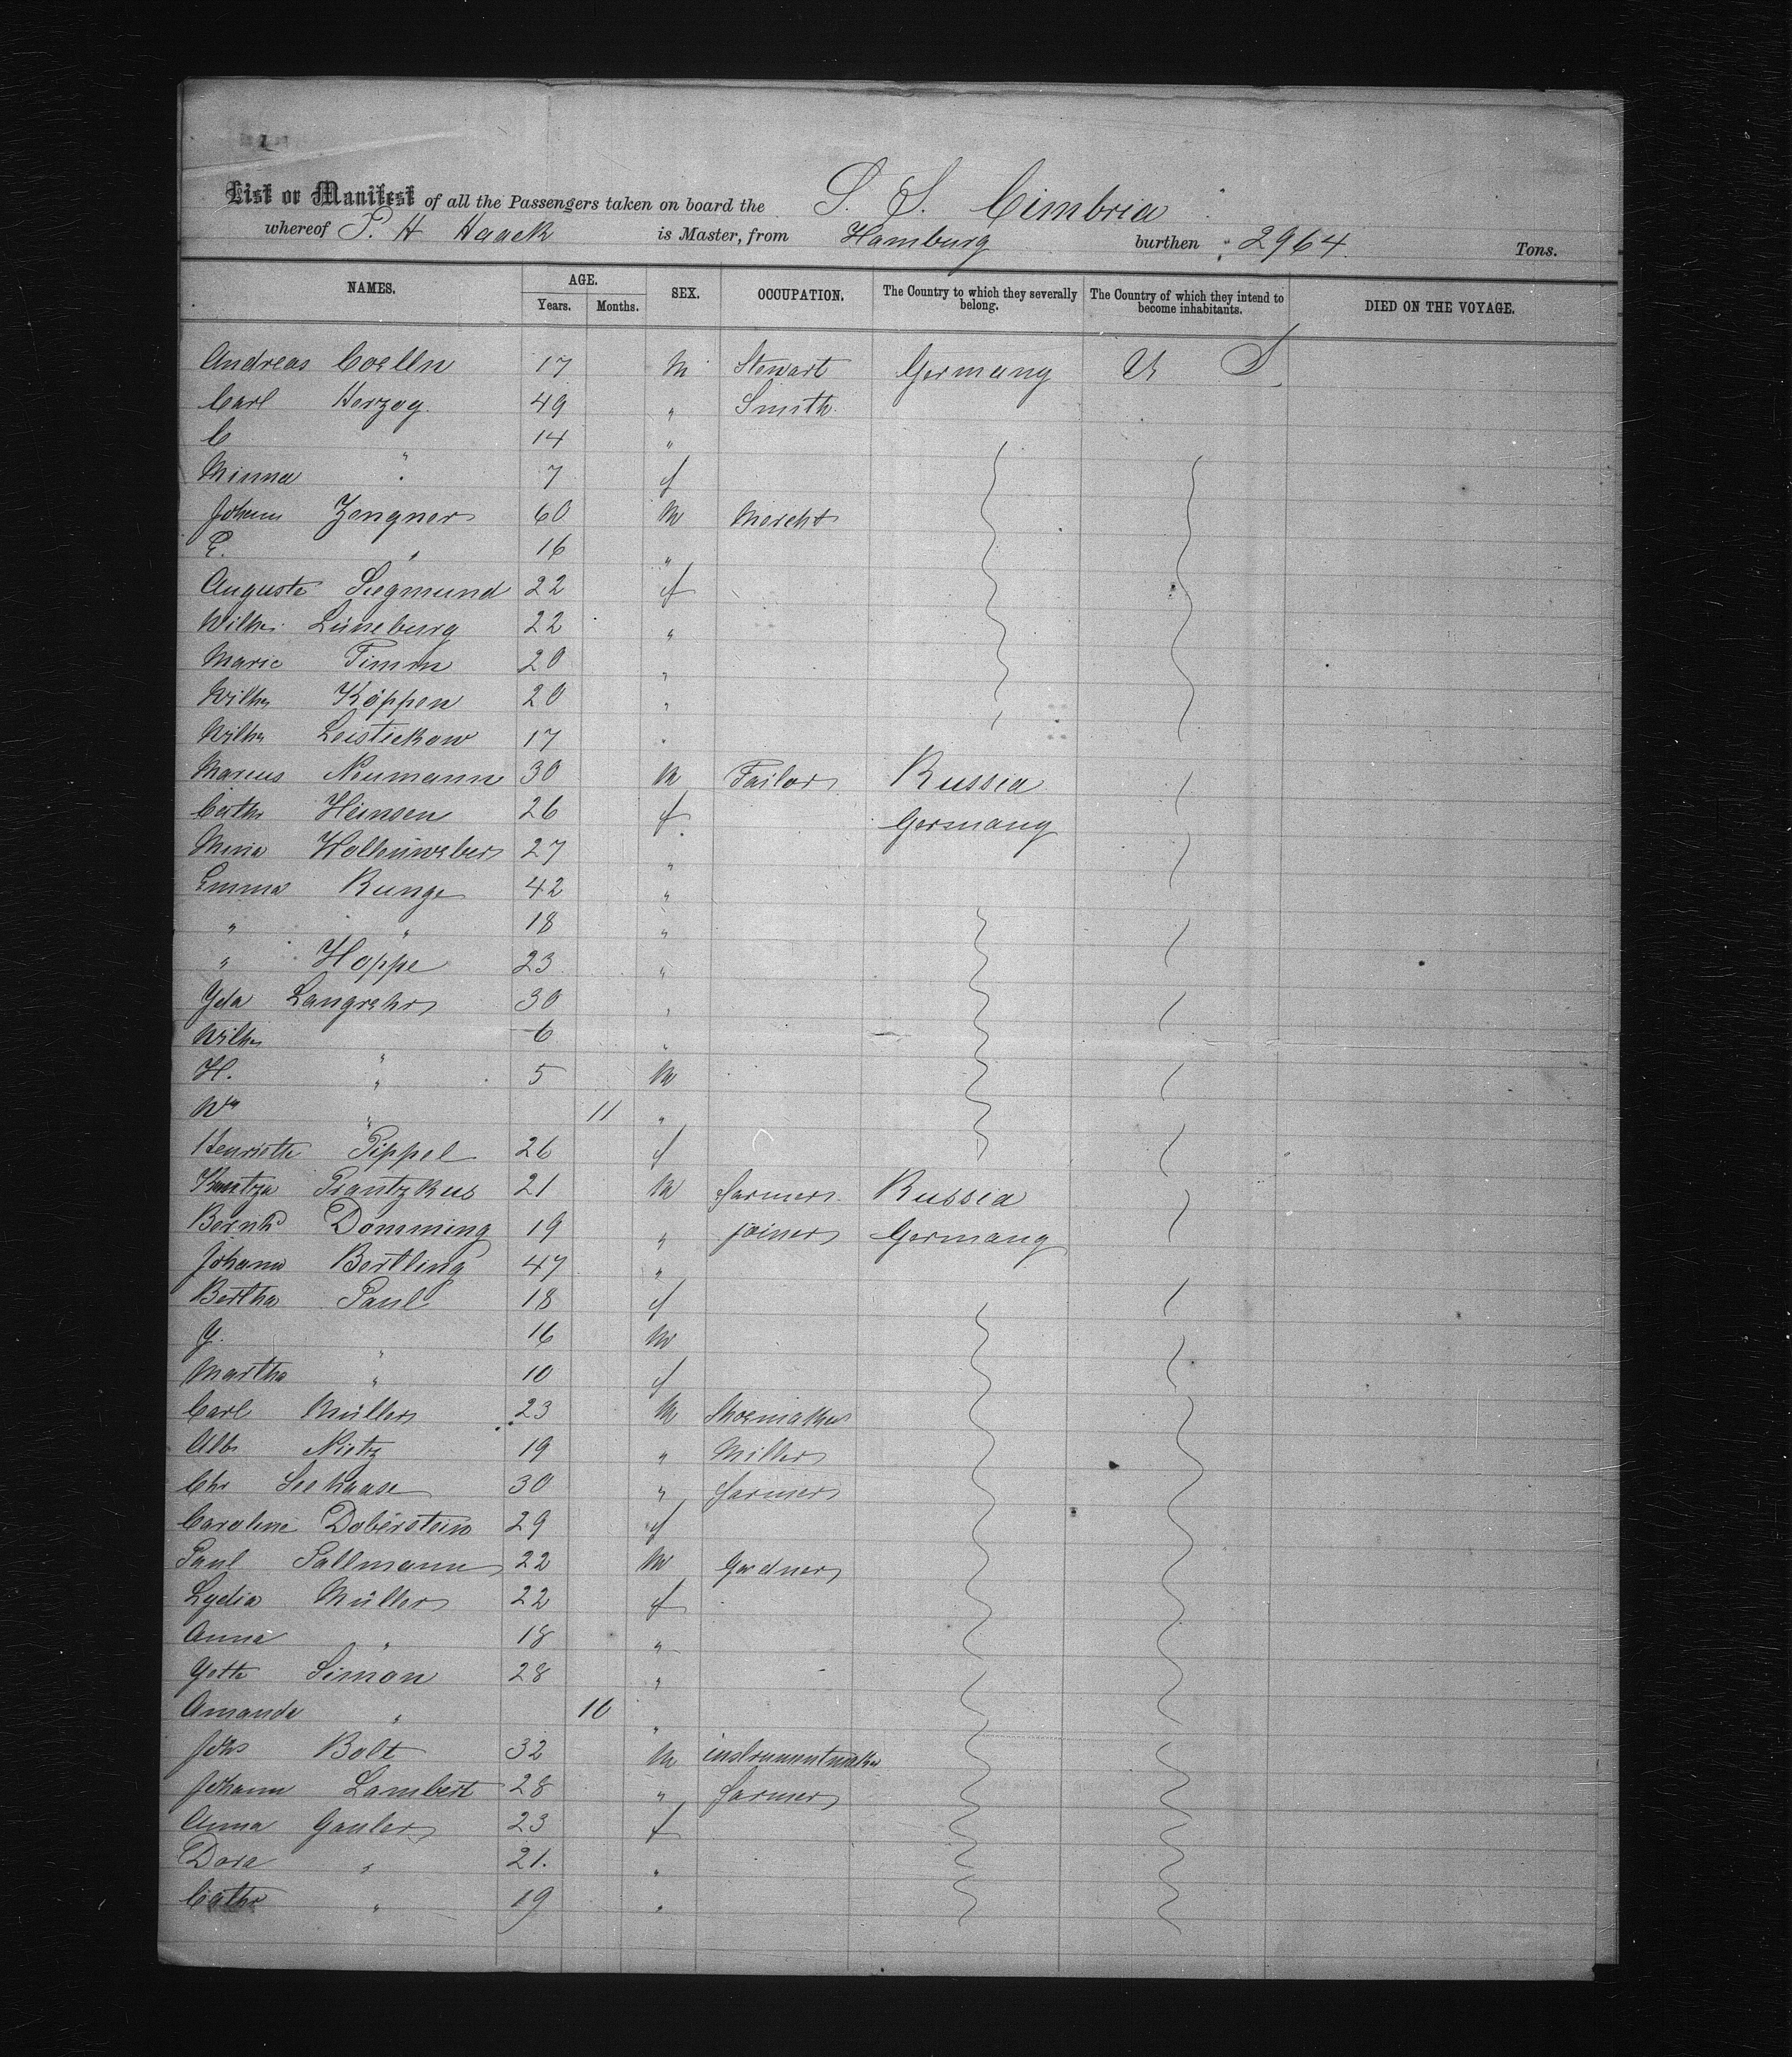 List or Manifest of all the Passengers taken on board the S. S. Cimbria
whereof P. H Haack is Master, from Hamburg burthen 2964 Tons.
NAMES. AGE. Years. Months. SEX. OCCUPATION. The Country to which they severally belong. The Country of which they intend to become inhabitants. DIED ON THE VOYAGE.
Andreas Coelln 17 M Stewart Germany U S
Carl Herzog 49 " Smith
C " 14 "
Minna " 7 f
Johann Zengner 60 M Mercht
E. " 16 "
Auguste Siegmund 22 f
Wilhe. Lüneburg 22 "
Marie Timm 20 "
Wilhe Köppen 20 "
Wilhe Leistickow 17 "
Marcus Neumann 30 M Tailor Russia
Cathr Heinsen 26 f Germany
Mina Hollenweber 27 "
Emma Runge 42 "
" " 18 "
" Hoppe 23 "
Yda Langrehr 30 "
Wilhe " 6 "
H. " 5 M
Wm " 11 "
Henriette Pippel 26 f
Prantzkus 21 M farmer Russia
Bernhd Domming 19 " joiner Germany
Johann Bertling 47 "
Bertha Paul 18 f
Y. " 16 M
Martha " 10 f
Carl Müller 23 M Shoemaker
Alb. Nietz 19 " Miller
Chr Seehaase 30 " farmer
Caroline Doberstein 29 f
Paul Pallmann 22 M Gardner
Lydia Müller 22 f
Anna " 18 "
Yette Simon 28 "
Amanda " 10 "
Johs Bolt 32 M instrumentmaker
Johann Lambert 28 " farmer
Anna Gauler 23 f
Dora " 21. "
Cathr " 19 "